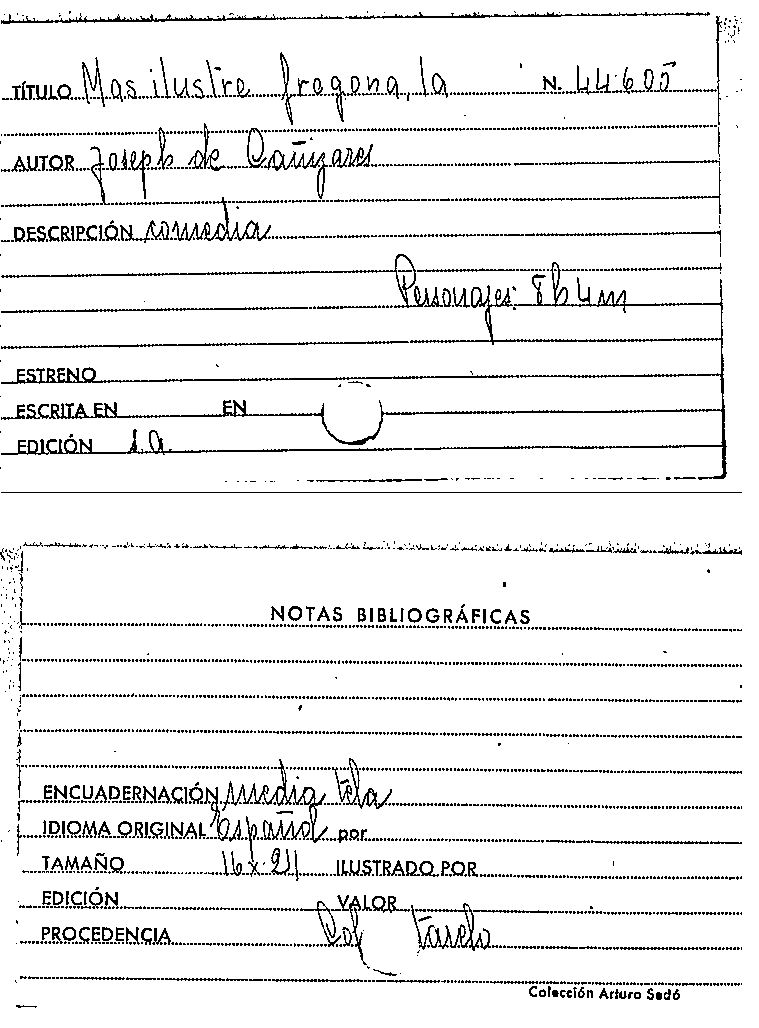 TÍTULO Mas ilustre fregona, la N. 44605
AUTOR Joseph de Cañizares
DESCRIPCIÓN comedia
Personajes: 8h 4m
ESTRENO
ESCRITA EN EN
EDICIÓN 1a.
NOTAS BIBLIOGRÁFICAS
ENCUADERNACIÓN media tela
IDIOMA ORIGINAL español por
TAMAÑO 16 x 21 ILUSTRADO POR
EDICIÓN VALOR
PROCEDENCIA Col
Colección Arturo Sedó